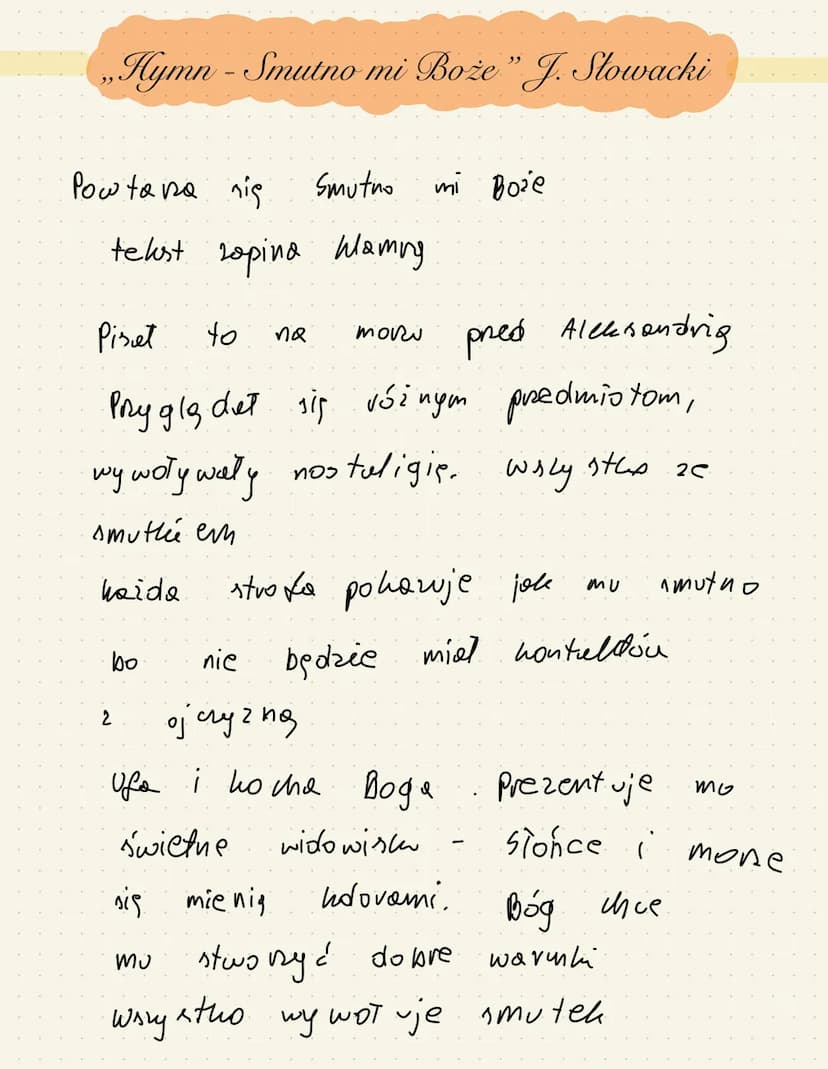 „Hymn - Smutno mi Boże" J. Słowacki
Powtarza się Smutno mi Boże
tekst zapina klamrą
Pisał to na morzu przed Aleksandrią
Przyglądał się różnym przedmiotom,
wywoływały nostaligię. Wszystko ze
smutkiem
każda strofa pokazuje jak mu smutno
bo nie będzie miał kontaktów
z ojczyzną
Ufa i kocha Boga. Prezentuje mo
świetne widowisko - Słońce i morze
się mienią kolorami. Bóg chce
mu stworzyć dobre warunki
Wszystko wywołuje smutek